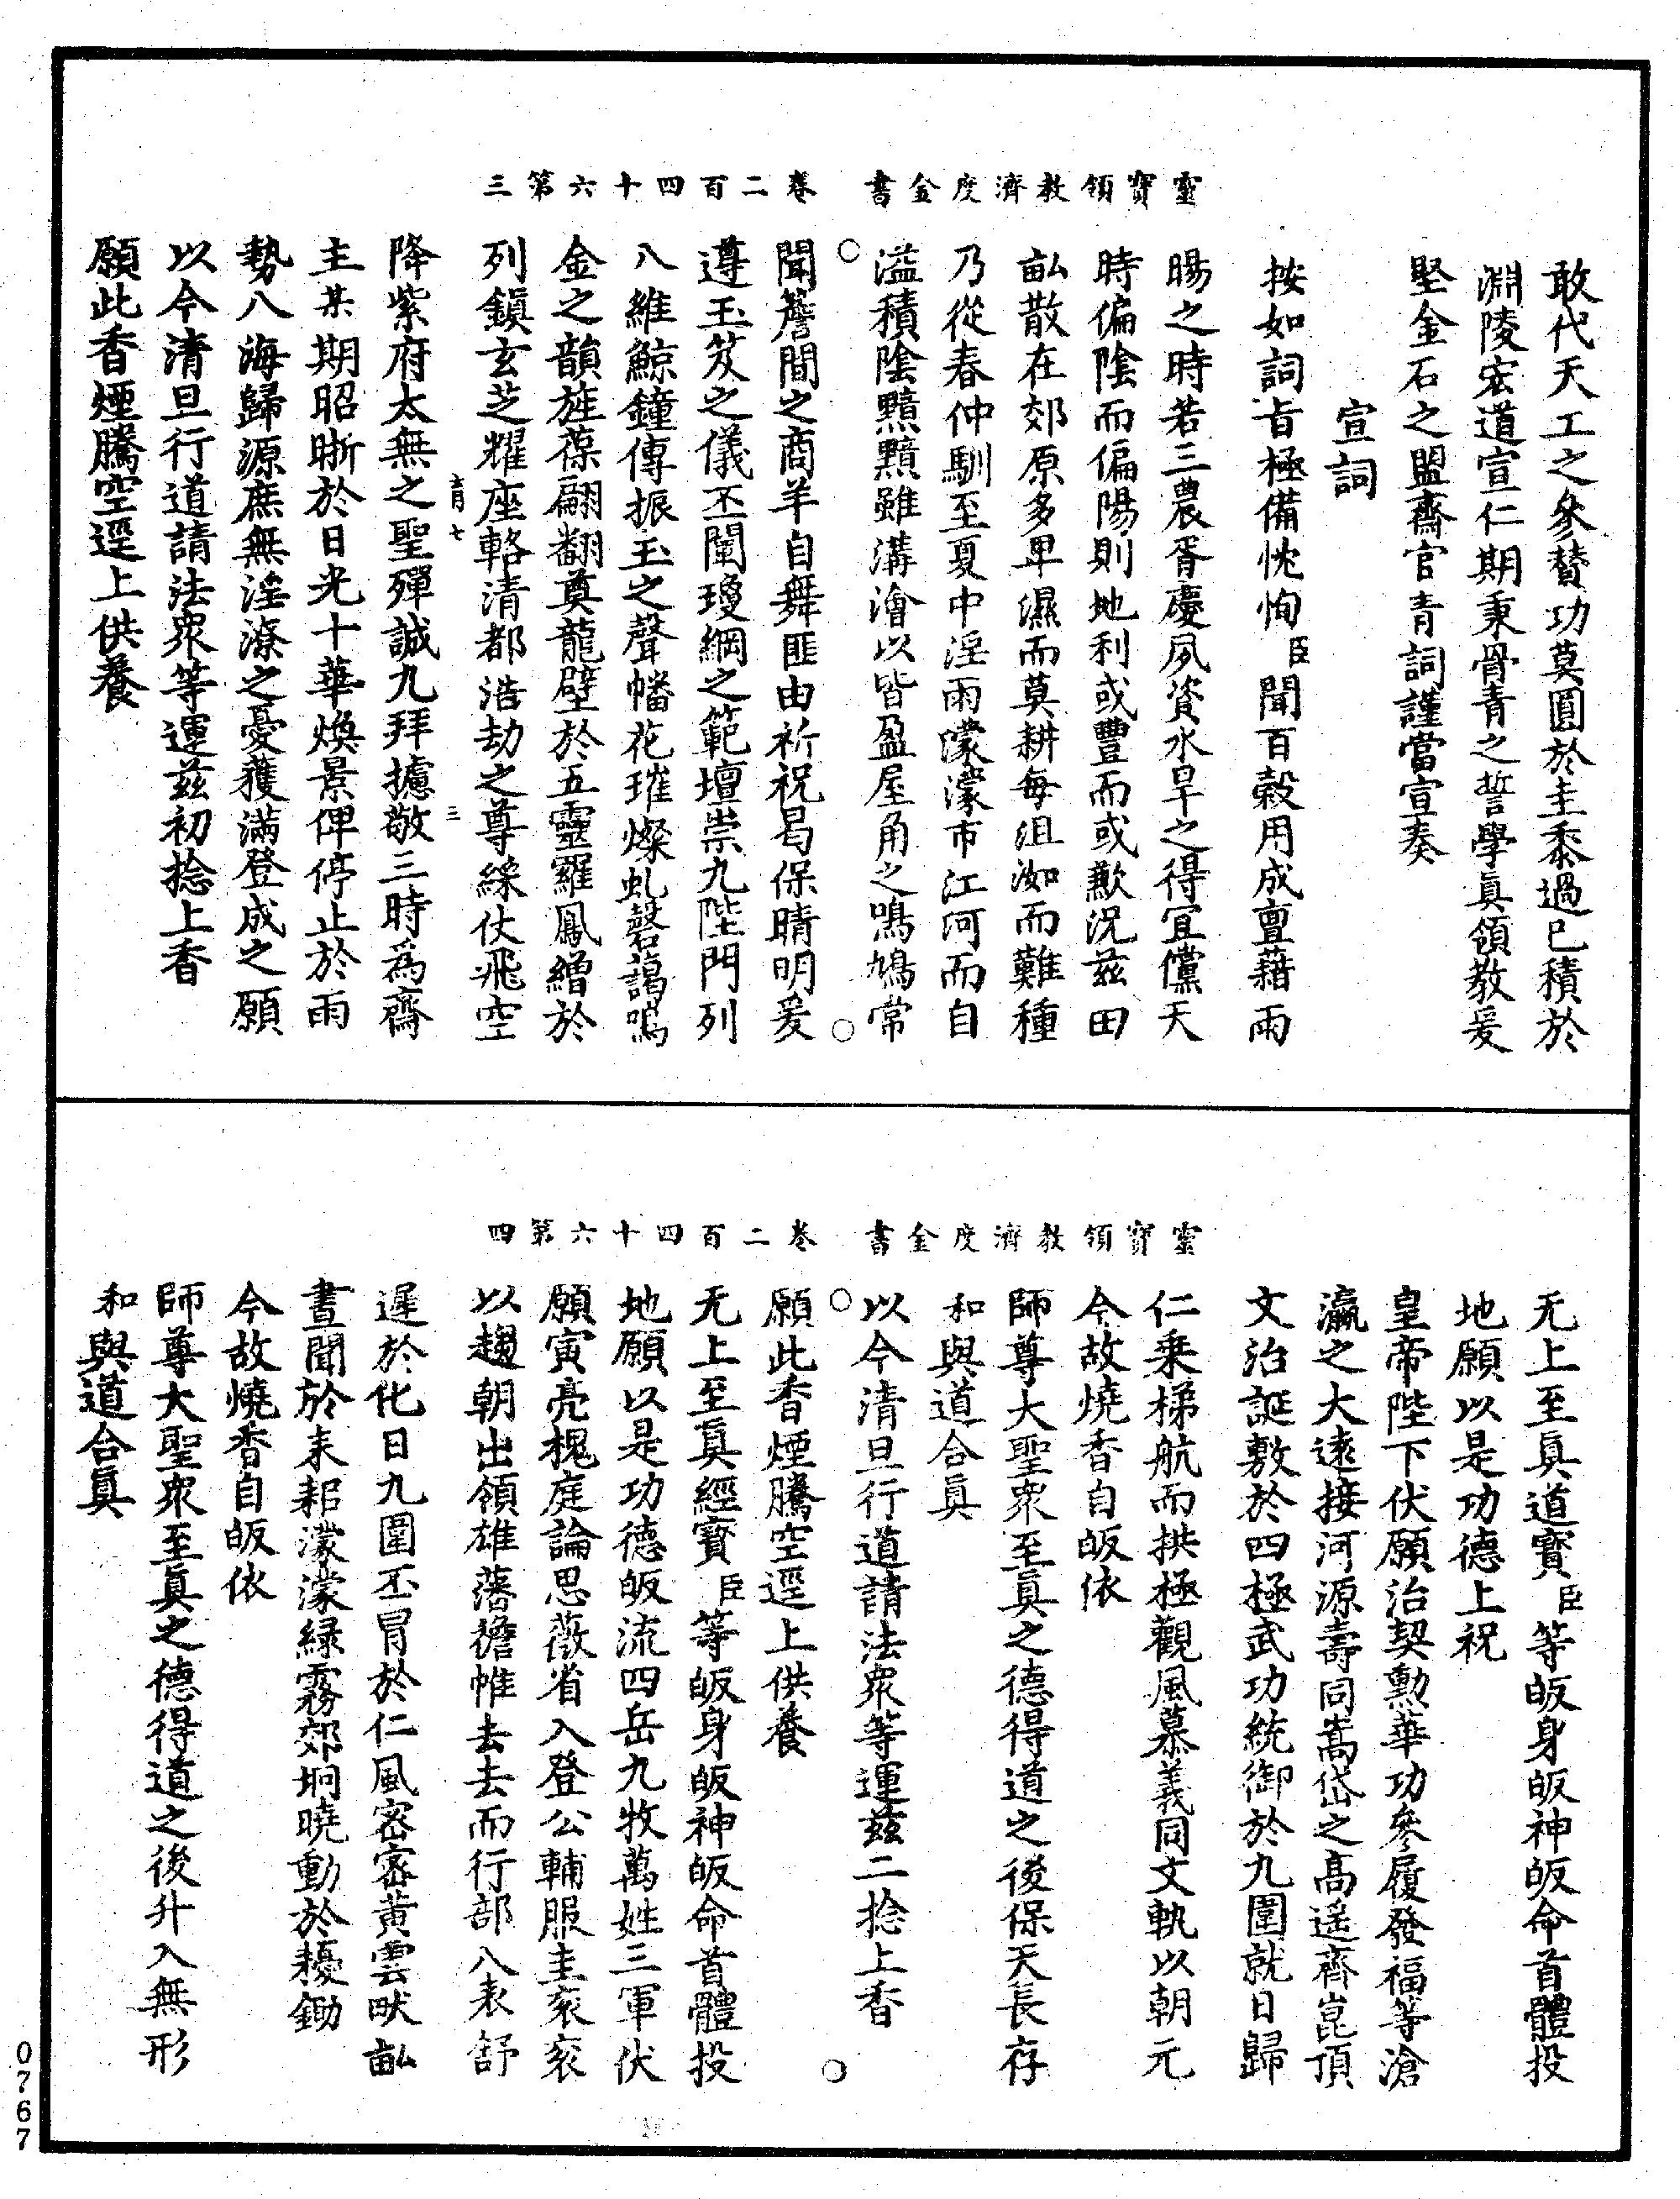 靈寶領教濟度金書　卷二百四十六第三
敢代天工之參贊功莫圓於圭黍過已積於
淵陵宏道宣仁期秉骨青之誓學眞領教爰
堅金石之盟齋官青詞謹當宣奏
宣詞
按如詞旨極備忱恂臣聞百穀用成亶藉雨
暘之時若三農胥慶夙資水旱之得宜儻天
時偏陰而偏陽則地利或豐而或歉況茲田
畝散在郊原多卑濕而莫耕每沮洳而難種
乃從春仲馴至夏中淫雨濛濛市江河而自
溢積陰黯黯雖溝澮以皆盈屋角之鳴鳩常
聞簷間之商羊自舞匪由祈祝曷保晴明爰
遵玉笈之儀丕闡瓊綱之範壇崇九陛門列
八維鯨鐘傳振玉之聲幡花璀燦虬磬謁鳴
金之韻旌葆翩翻奠龍壁於五靈羅鳳繒於
列鎮玄芝耀座輅清都浩劫之尊綵仗飛空
降紫府太無之聖殫誠九拜攄敬三時爲齋
主某期昭晣於日光十華煥景俾停止於雨
勢八海歸源庶無淫潦之憂獲滿登成之願
以今清旦行道請法衆等運兹初捻上香
願此香煙騰空逕上供養
靈寶領教濟度金書　卷二百四十六第四
无上至眞道寶臣等皈身皈神皈命首體投
地願以是功德上祝
皇帝陛下伏願治契勳華功參履發福等滄
瀛之大遠接河源壽同嵩岱之高遥齊崑頂
文治誕敷於四極武功統御於九圍就日歸
仁乗梯航而拱極觀風慕義同文軌以朝元
今故燒香自皈依
師尊大聖衆至眞之德得道之後保天長存
和與道合眞
以今清旦行道請法衆等運兹二捻上香
願此香煙騰空逕上供養
无上至眞經寳臣等皈身皈神皈命首體投
地願以是功德皈流四岳九牧萬姓三軍伏
願寅亮槐庭論思薇省入登公輔服圭衮衮
以趨朝出領雄藩襜帷去去而行部八表舒
遲於化日九圍丕冒於仁風密密黄雲畎畝
晝聞於耒耜濛濛緑霧郊坰曉動於耰鋤
今故燒香自皈依
師尊大聖衆至眞之德得道之後升入無形
和與道合眞
0767